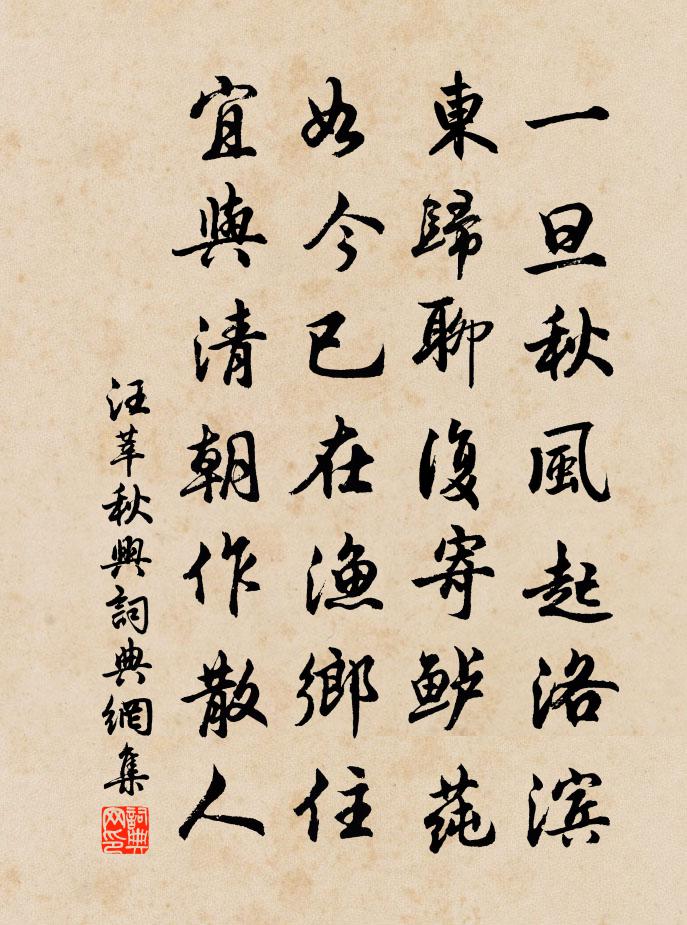 一旦秋風起洛滨
東歸聊復寄鲈莼
如今已在漁鄉住
宜與清朝作散人
汪莘秋興詞典網集
詞典网印